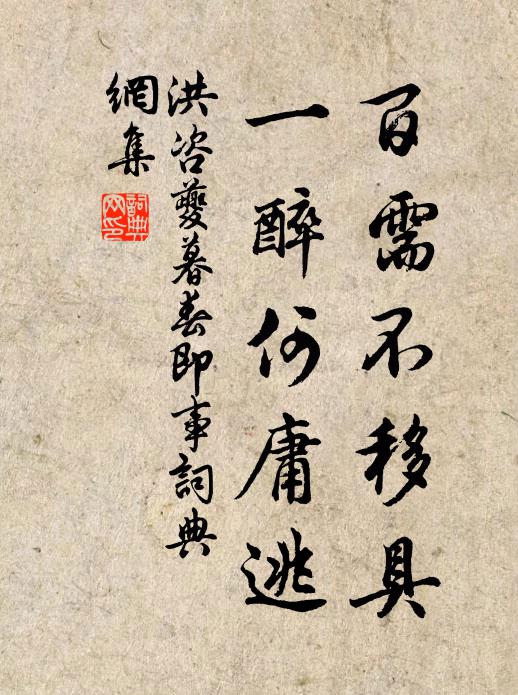 百需不移具
一醉何庸逃
洪咨夔暮春即事詞典
網集
詞典
網印